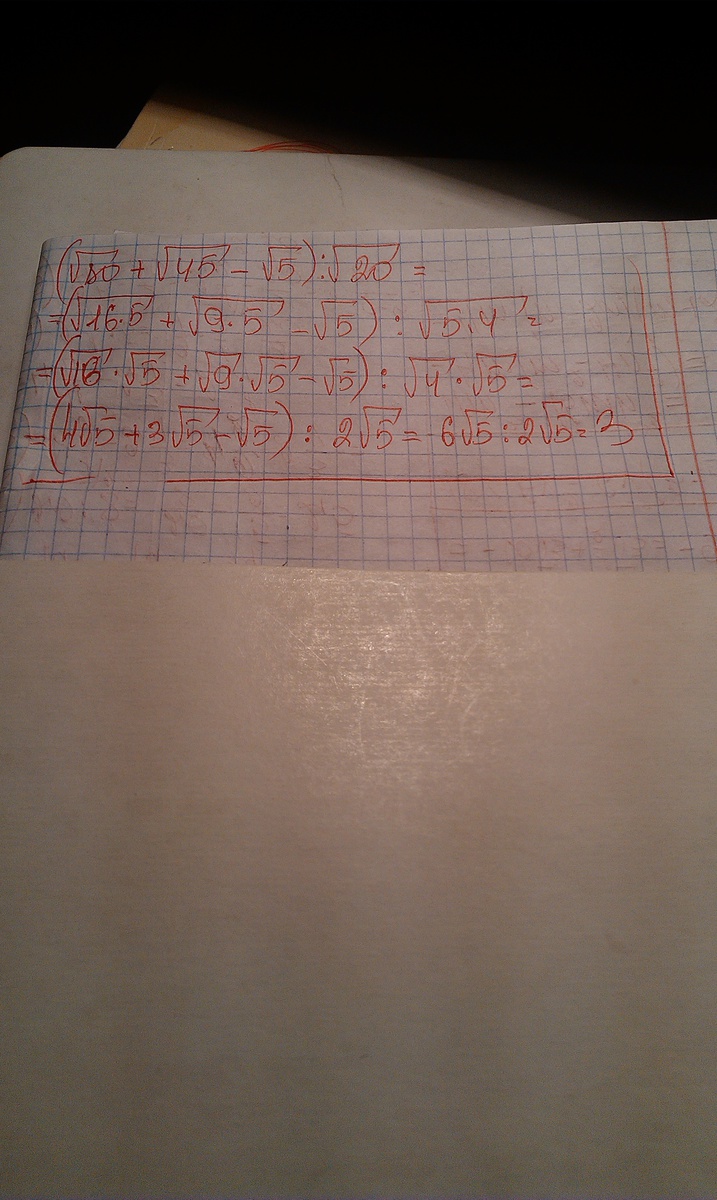 (√80 + √45 - √5) : √20 =
= (√16·5 + √9·5 - √5) : √5·4 =
= (√16·√5 + √9·√5 - √5) : √4·√5 =
= (4√5 + 3√5 - √5) : 2√5 = 6√5 : 2√5 = 3